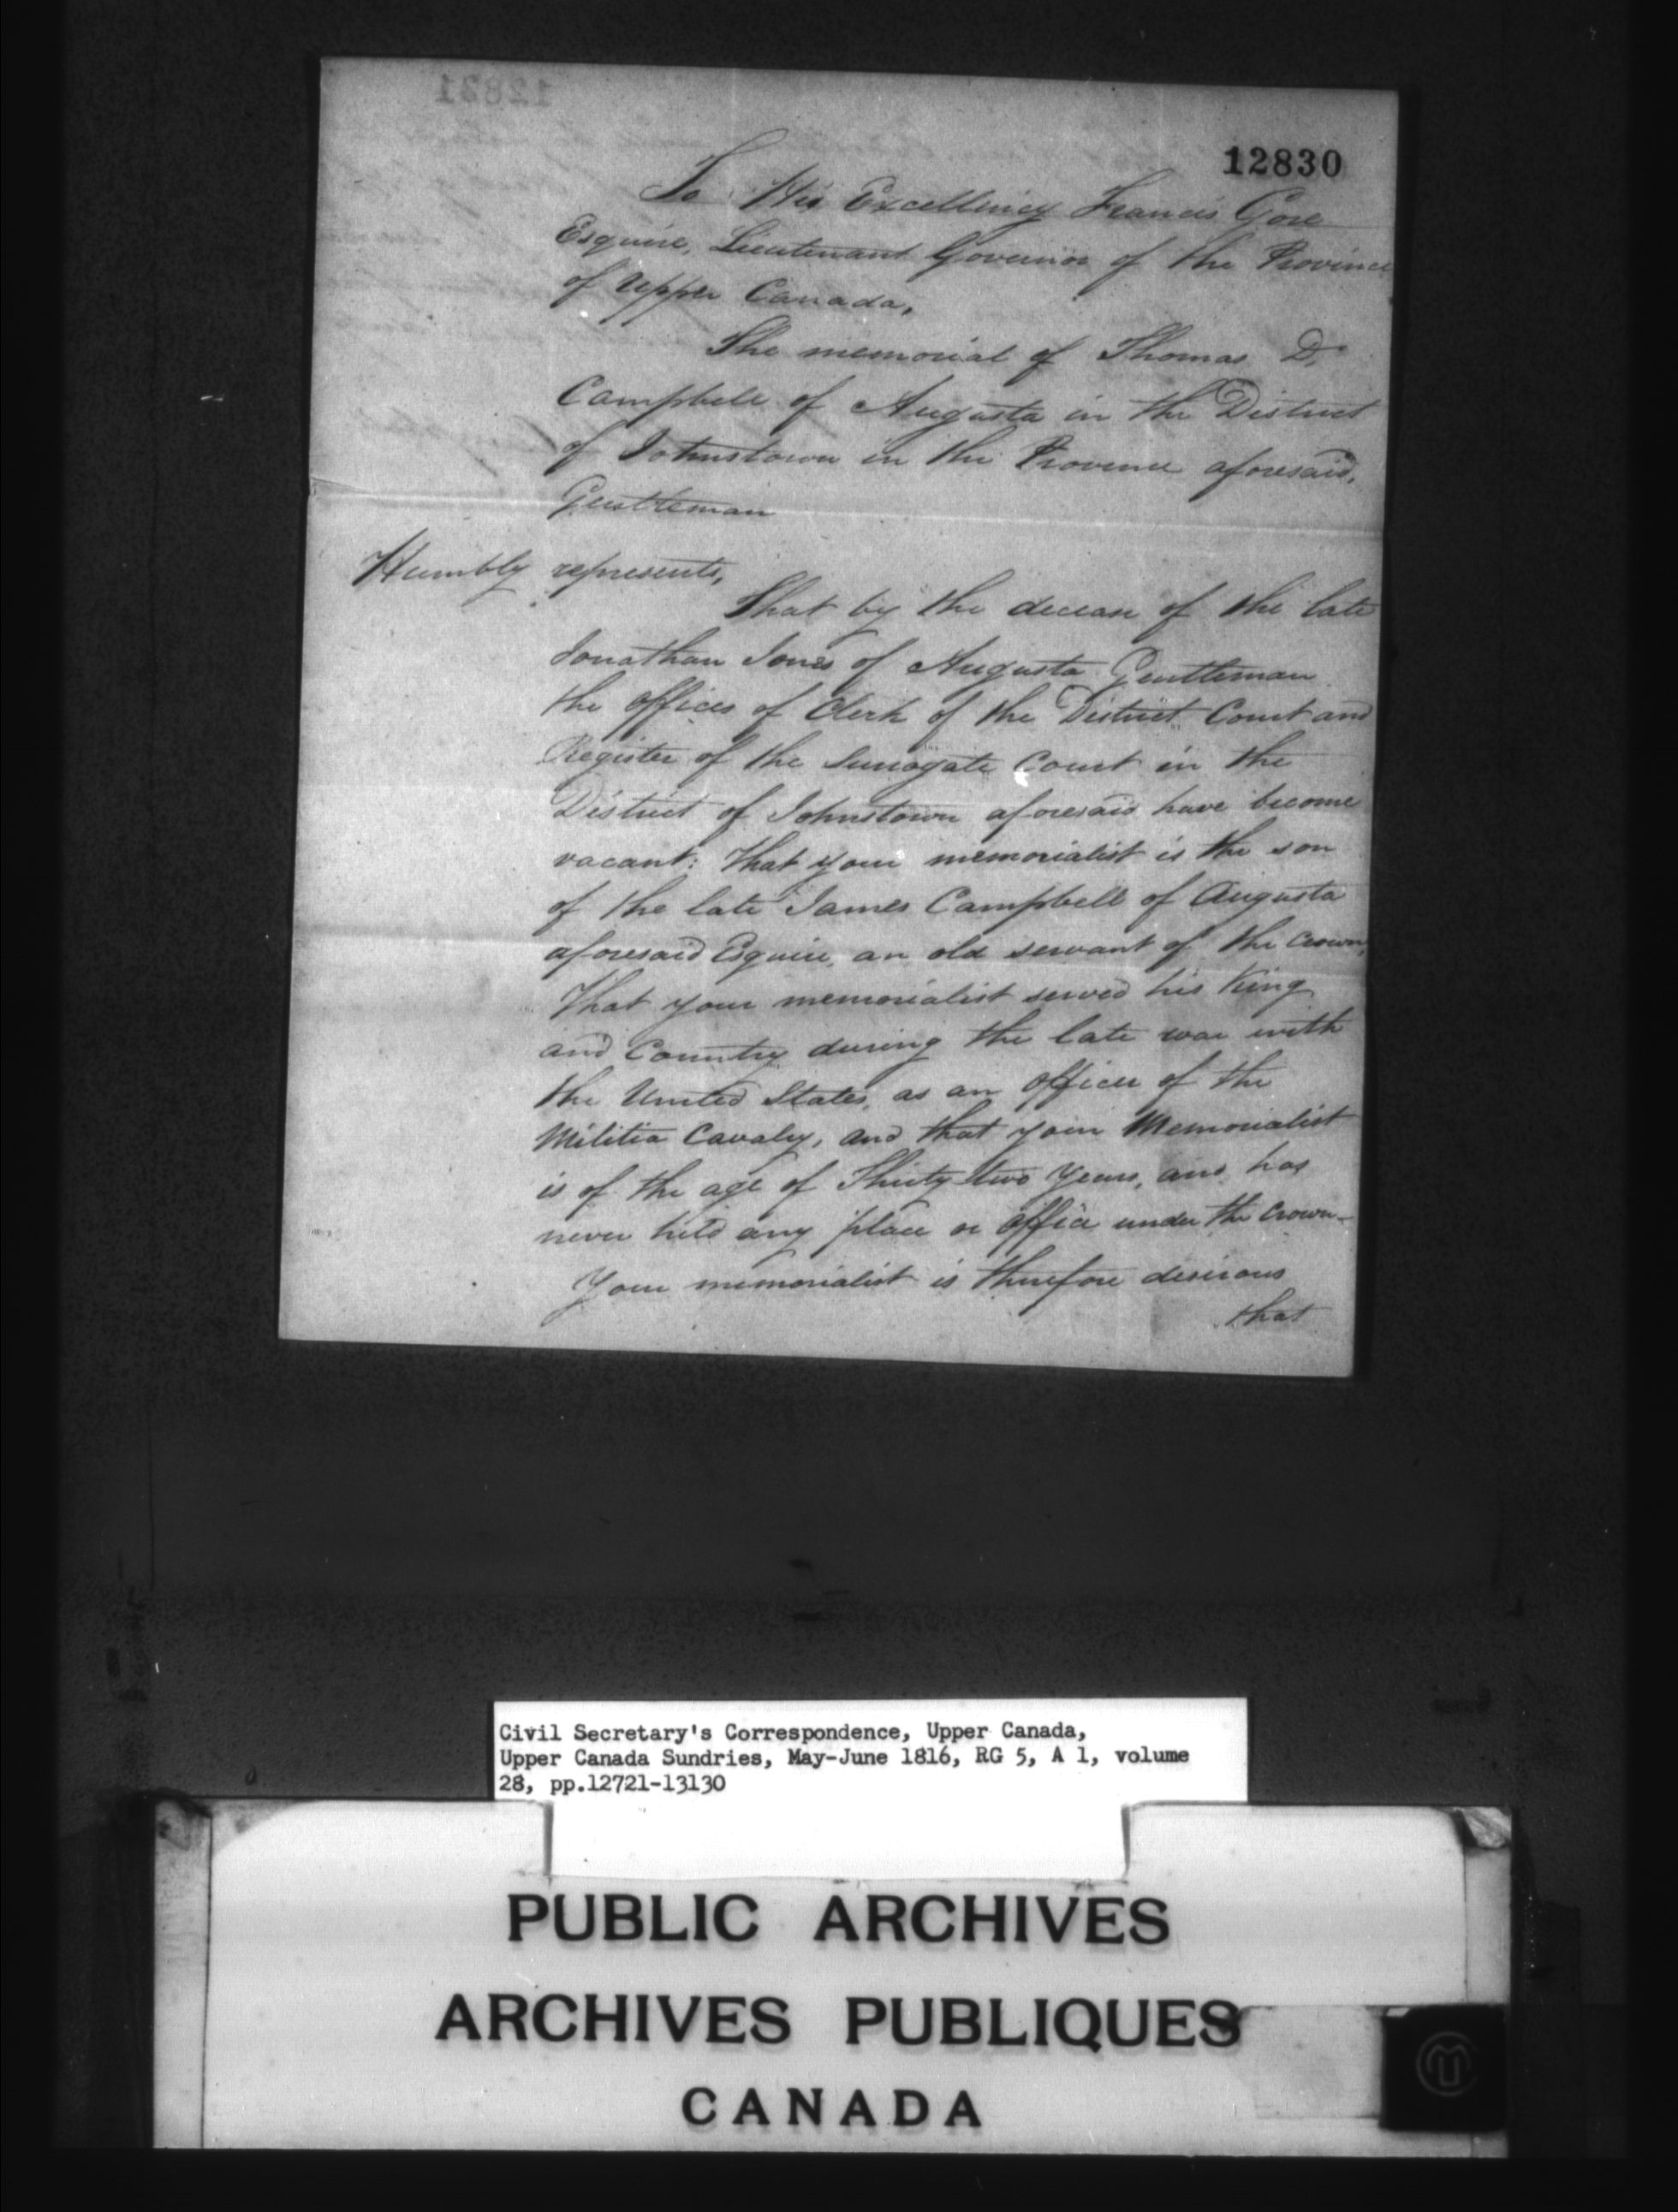 12831
12830
To His Excellency Francis Gore
Esquire, Lieutenant Governor of the Province
of Upper Canada,
The memorial of Thomas D.
Campbell of Augusta in the District
of Johnstown in the Province aforesaid,
Gentleman
Humbly represents,
That by the decease of the late
Jonathan Jones of Augusta Gentleman
the offices of Clerk of the District Court and
Register of the Surrogate Court in the
District of Johnstown aforesaid have become
vacant: that your memorialist is the son
of the late James Campbell of Augusta
aforesaid Esquire, an old servant of the Crown,
That your memorialist served his King
and Country during the late war with
the United States, as an officer of the
Militia Cavalry, and that your Memorialist
is of the age of Thirty two Years, and has
never held any place or office under the Crown—
Your memorialist is therefore desirous
that
Civil Secretary's Correspondence, Upper Canada,
Upper Canada Sundries, May-June 1816, RG 5, A 1, volume
28, pp.12721-13130
PUBLIC ARCHIVES
ARCHIVES PUBLIQUES
CANADA